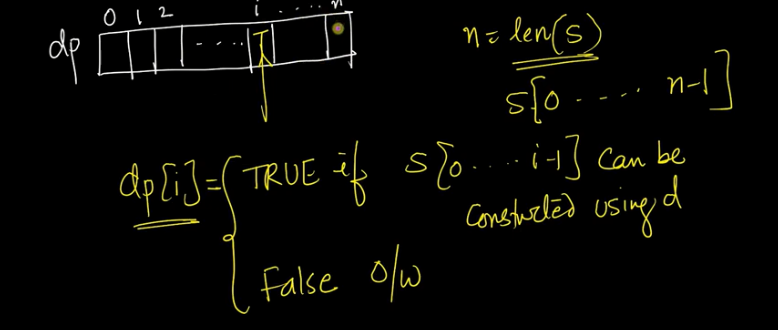 0 1 2 i ..... n
dp ..... I
n = len(s)
s[0 ..... n-1]
dp[i] = { TRUE if s[0 .... i-1] can be
constucted using d
False o/w